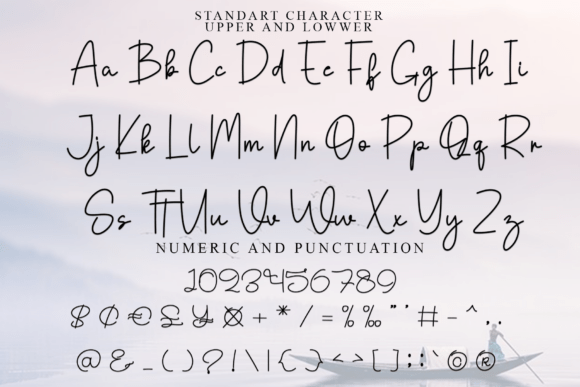 STANDART CHARACTER
UPPER AND LOWWER
Aa Bb Cc Dd Ee Ff Gg Hh Ii
Jj Kk Ll Mm Nn Oo Pp Qq Rr
Ss Tt Uu Vv Ww Xx Yy Zz
NUMERIC AND PUNCTUATION
1023456789
$ ₵ € £ ¥ ¤ + * / = % ‰ " ' # - ^ . .
@ & _ ( ) ? ! \ | { } < > [ ] : ; ` © ®